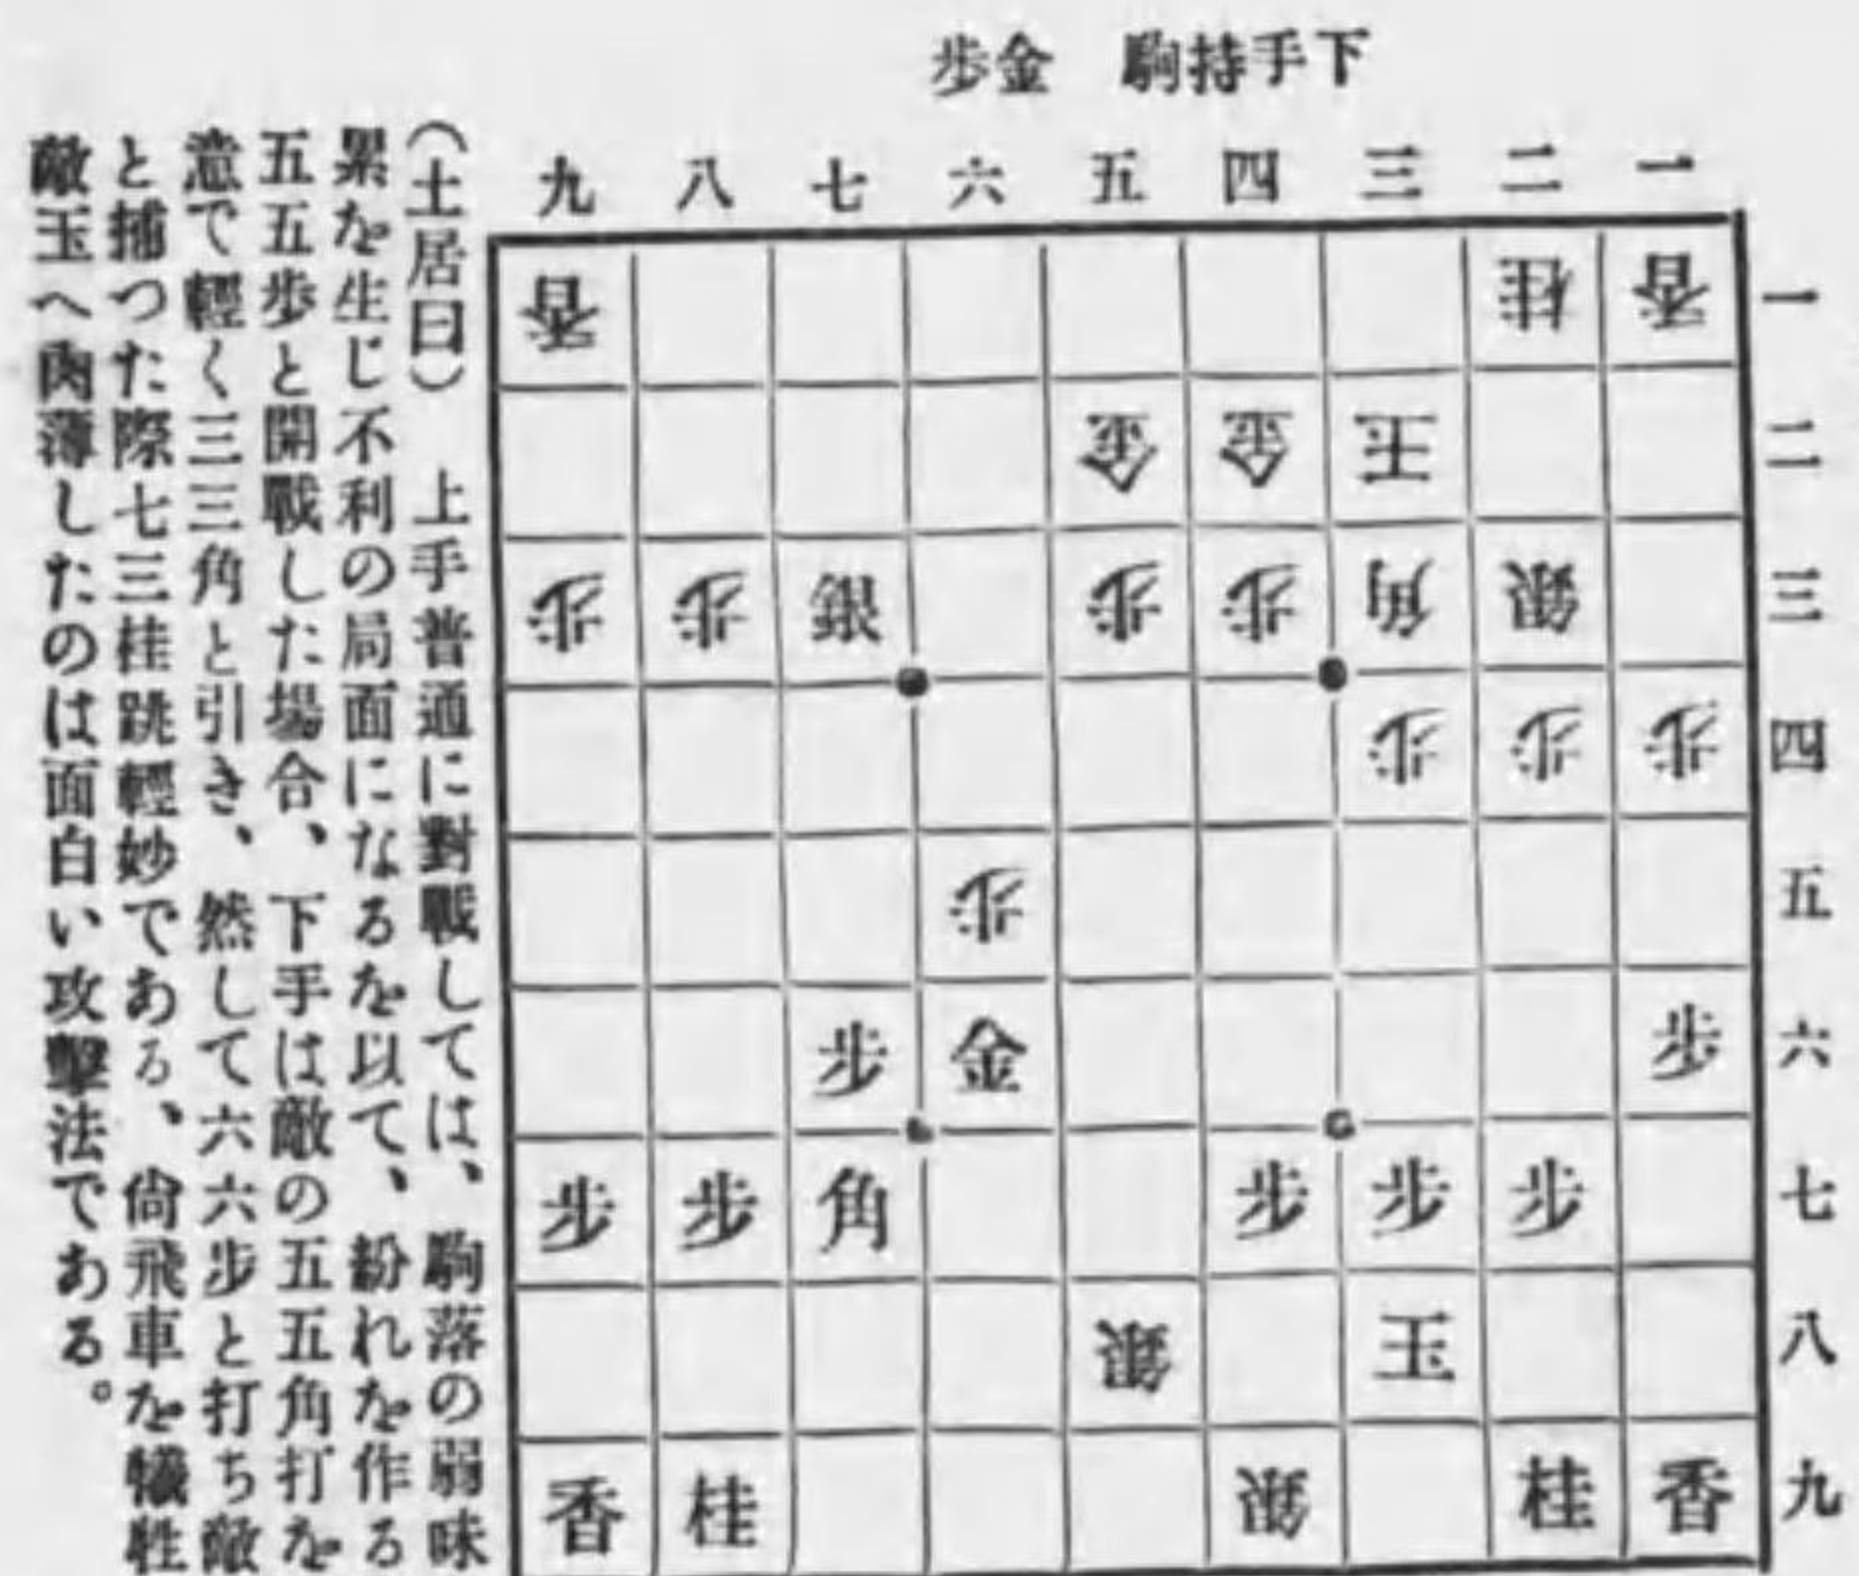 下手持駒 金歩
九八七六五四三二一
香桂香一
金金王二
歩歩銀歩歩角銀三
歩歩歩四
歩五
歩金歩六
歩歩角歩歩歩七
銀王八
香桂銀桂香九
(土居曰) 上手普通に對戰しては、駒落の弱味
累を生じ不利の局面になるを以て、紛れを作る
五五歩と開戰した場合、下手は敵の五五角打を
意で輕く三三角と引き、然して六六歩と打ち敵
と捕つた際七三桂跳輕妙である、尙飛車を犠牲
敵玉へ肉薄したのは面白い攻擊法である。